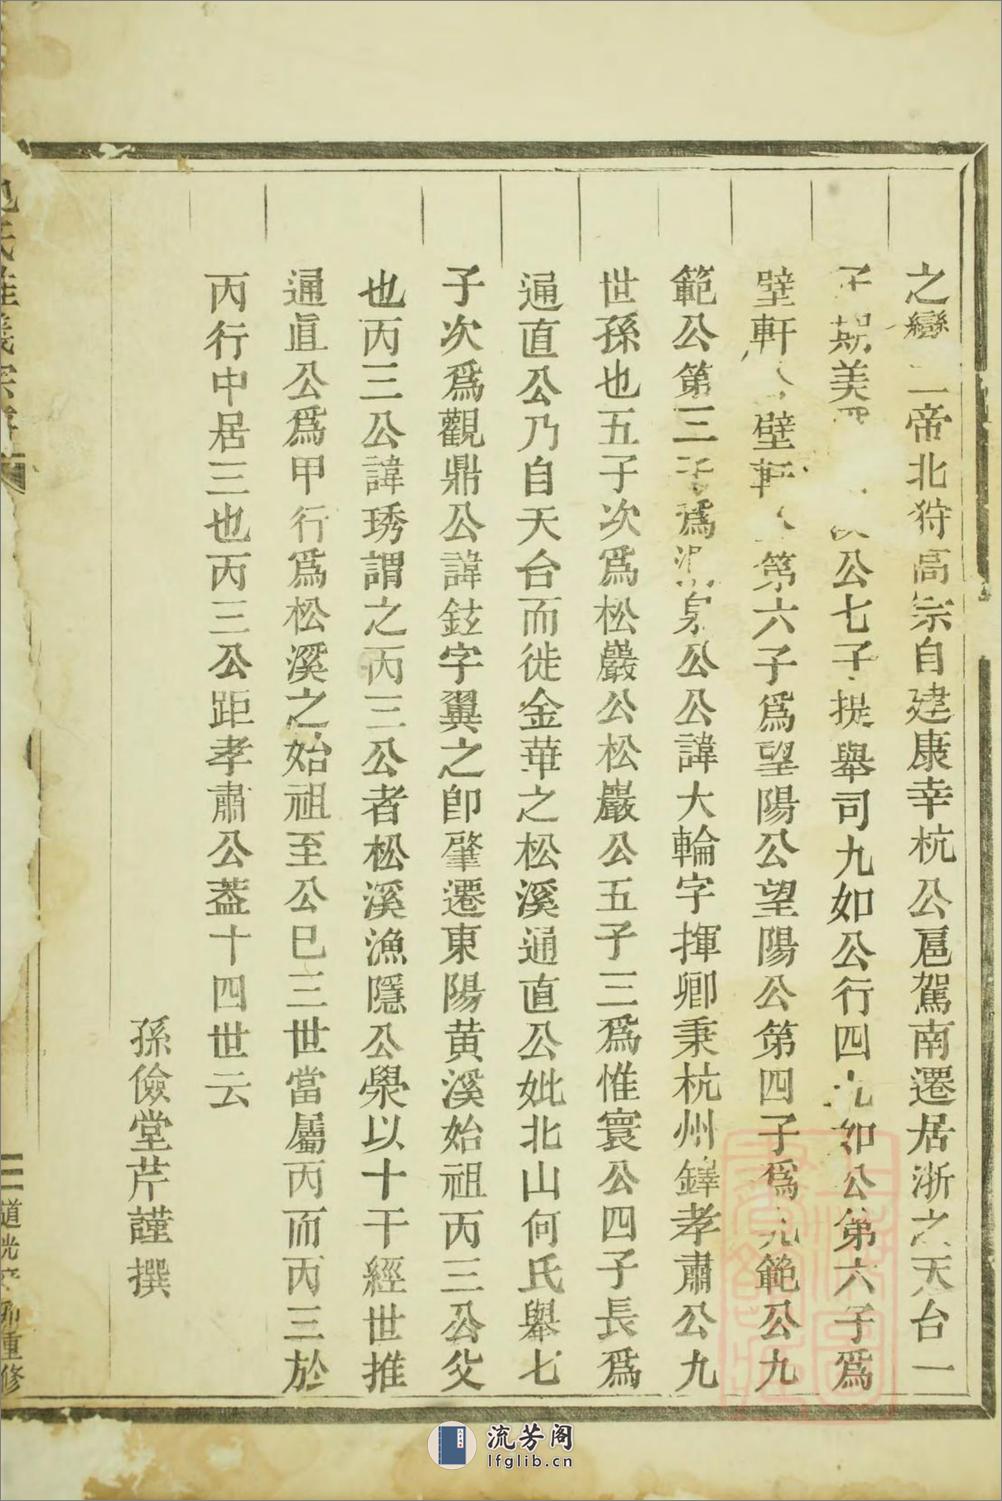 之變二帝北狩高宗自建康幸杭公扈駕南遷居浙之天台一
子期美公七子提舉司九如公行四九如公第六子爲
壁軒公壁軒公第六子爲望陽公望陽公第四子爲九範公九
範公第三子爲泉公公諱大輪字揮卿秉杭州鐸孝肅公九
世孫也五子次爲松巖公松巖公五子三爲惟寰公四子長爲
通直公乃自天台而徙金華之松溪通直公妣北山何氏舉七
子次爲觀鼎公諱鉉字翼之卽肇遷東陽黃溪始祖丙三公父
也丙三公諱琇謂之丙三公者松溪漁隱公嶨以十干經世推
通直公爲甲行爲松溪之始祖至公巳三世當屬丙而丙三於
丙行中居三也丙三公距孝肅公葢十四世云
孫儉堂芹謹撰
氏
宗譜
道光重修
流芳阁
lfglib.cn